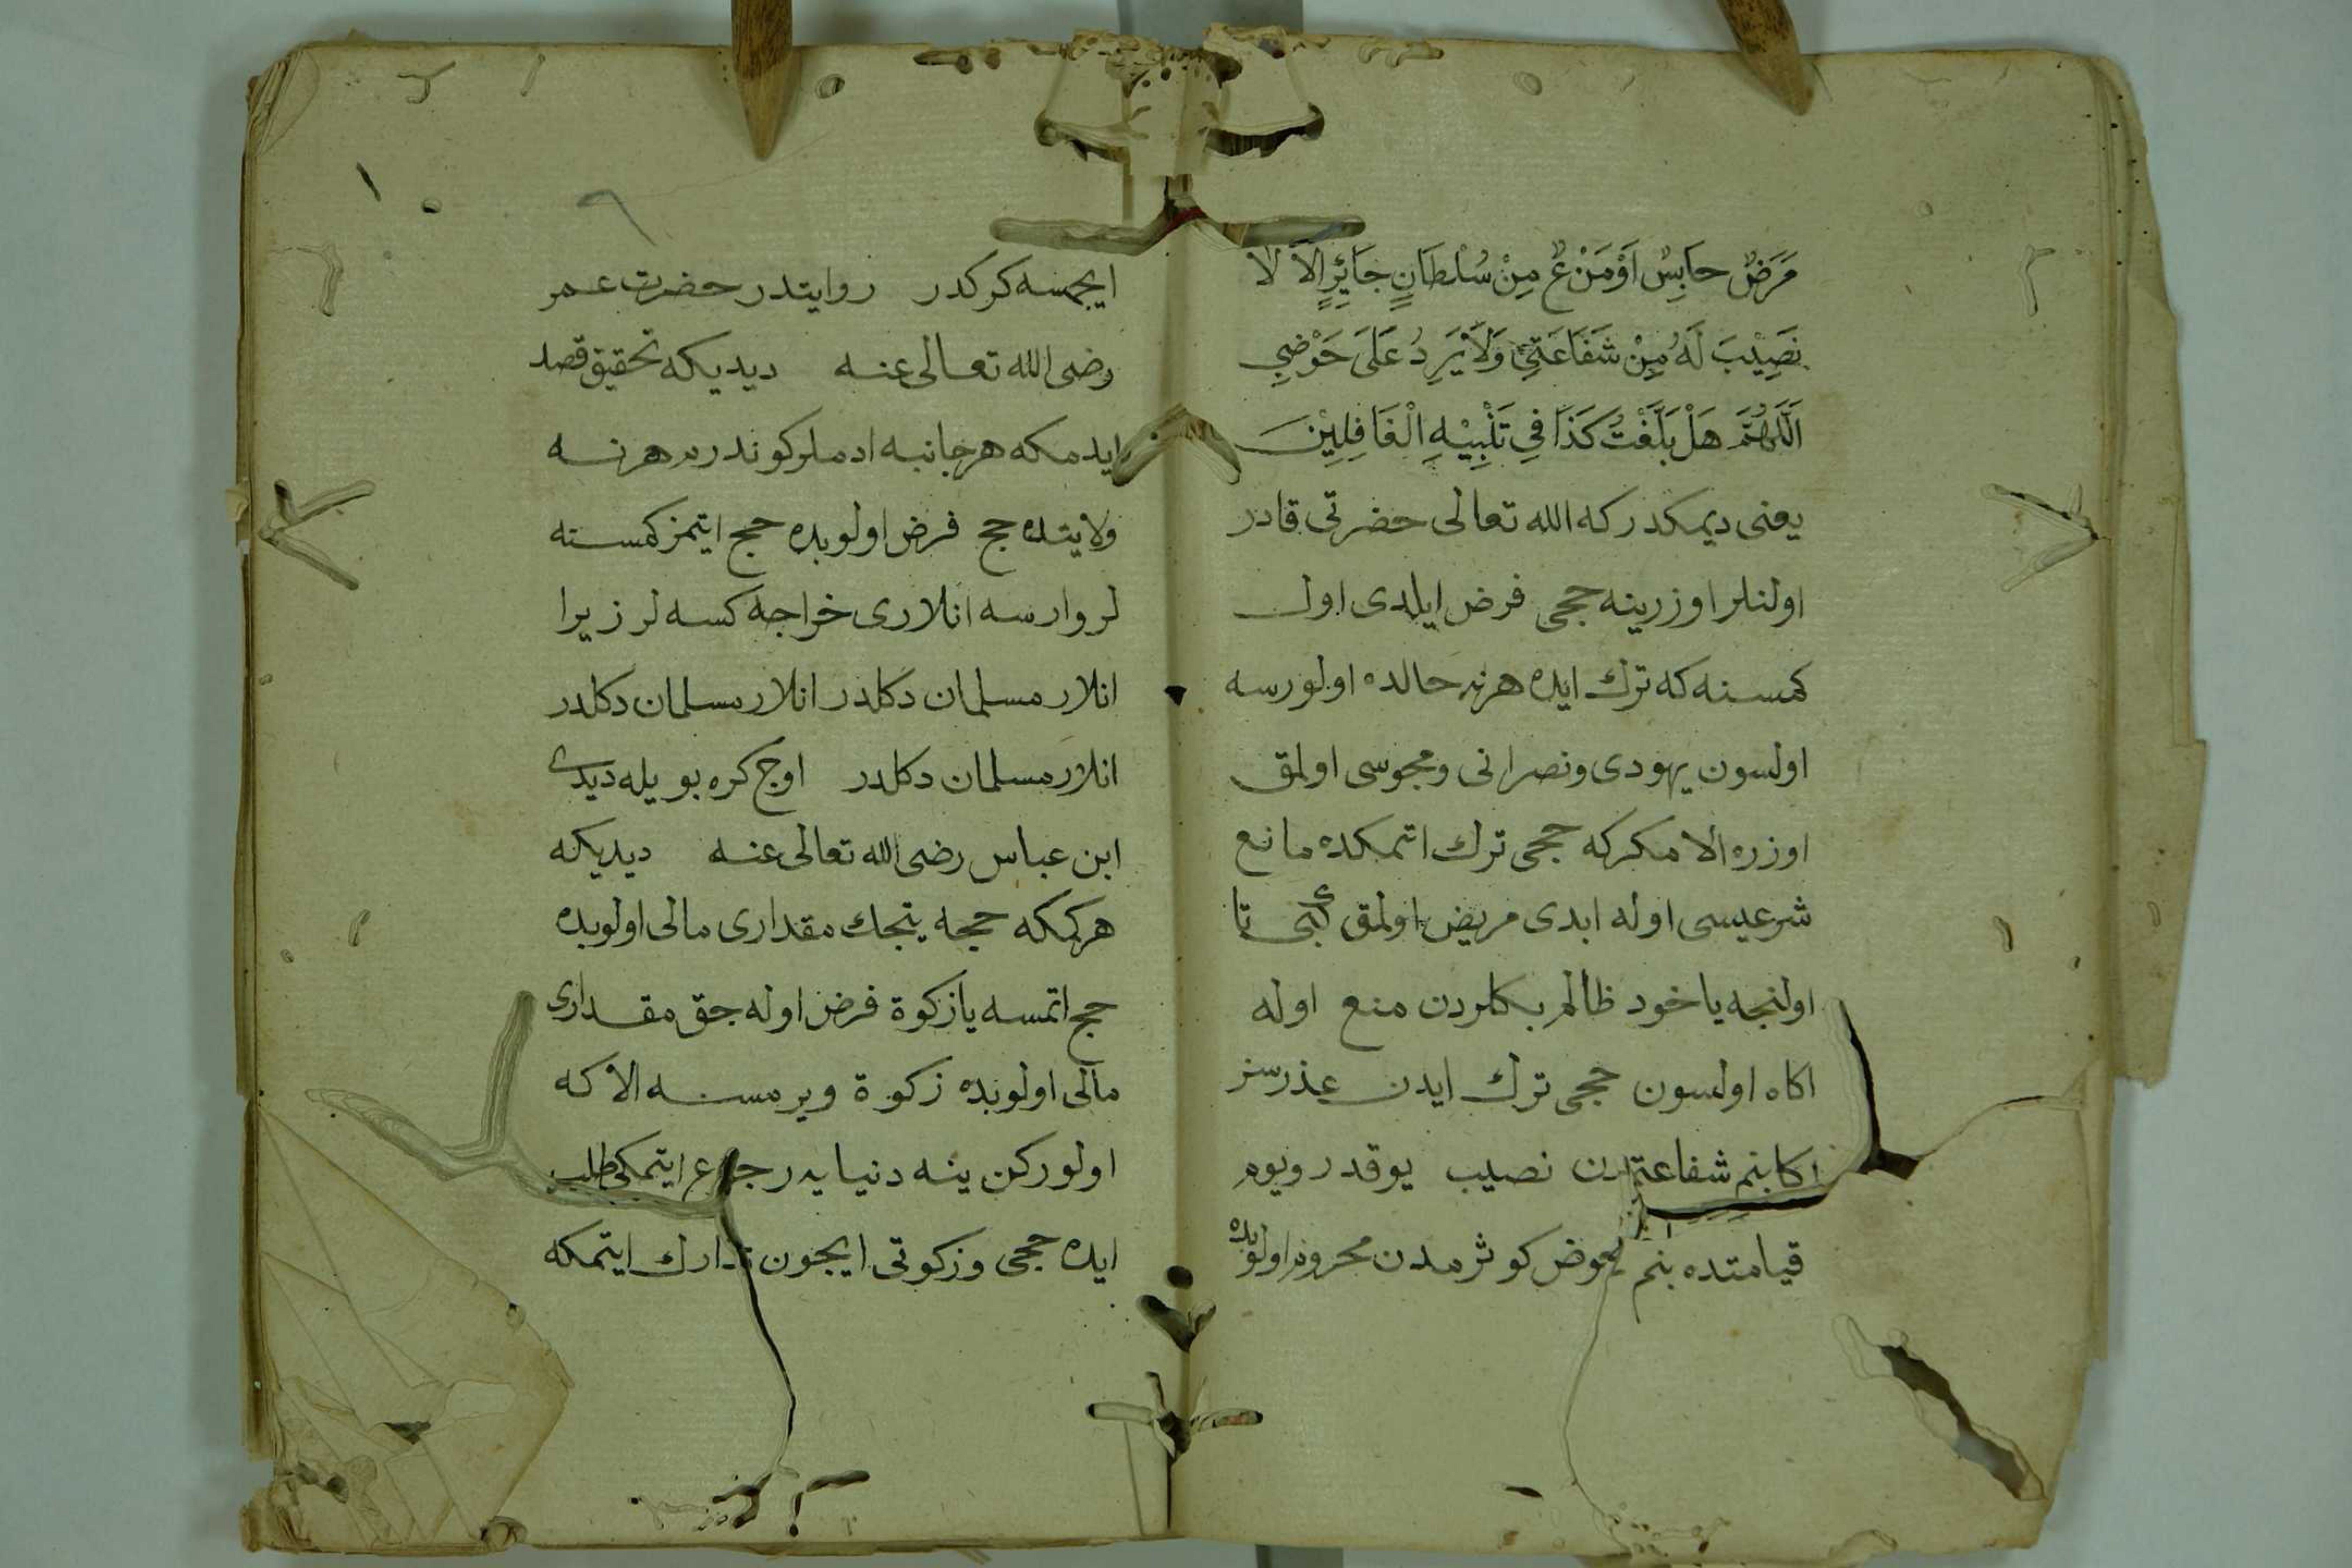 مَرَضٌ حَابِسٌ اَوْ مَنْعٌ مِنْ سُلْطَانٍ جَائِرٍ اِلَّا لَا
نَصِيْبَ لَهُ مِنْ شَفَاعَتِي وَلَا يَرِدُ عَلَى حَوْضِي
اَللّٰهُمَّ هَلْ بَلَّغْتُ كَذَا فِي تَنْبِيْهِ الْغَافِلِيْنَ
يعنى ديمكدر كه الله تعالى حضرتى قادر
اولنلر اوزرينه حجى فرض ايلدى اول
كمسنه كه ترك ايده هر نه حالده اولورسه
اولسون يهودى ونصرانى ومجوسى اولمق
اوزره الا مكر كه حجى ترك اتمكده مانع
شرعيسى اوله ابدى مريض اولمق كبى تا
اولنجه ياخود ظالم بكلردن منع اوله
اكاه اولسون حجى ترك ايدن عذرسز
اكا بنم شفاعتمدن نصيب يوقدر ويوم
قيامتده بنم حوض كوثرمدن محروم اولوبده
ايچمسه كركدر روايتدر حضرت عمر
رضى الله تعالى عنه ديديكه تحقيق قصد
ايدمكه هر جانبه ادملر كوندرم هر نه
ولايتده حج فرض اولوبده حج ايتمز كمسنه
لر وارسه انلارى خراجه كسه لر زيرا
انلار مسلمان دكلدر انلار مسلمان دكلدر
انلار مسلمان دكلدر اوچ كره بويله ديدى
ابن عباس رضى الله تعالى عنه ديديكه
هر كمكه حجه يتجك مقدارى مالى اولوبده
حج اتمسه يا زكوة فرض اوله جق مقدارى
مالى اولوبده زكوة ويرمسه الا كه
اولوركن ينه دنيايه رجوع ايتمكى طلب
ايده حجى وزكوتى ايچون تدارك ايتمكه